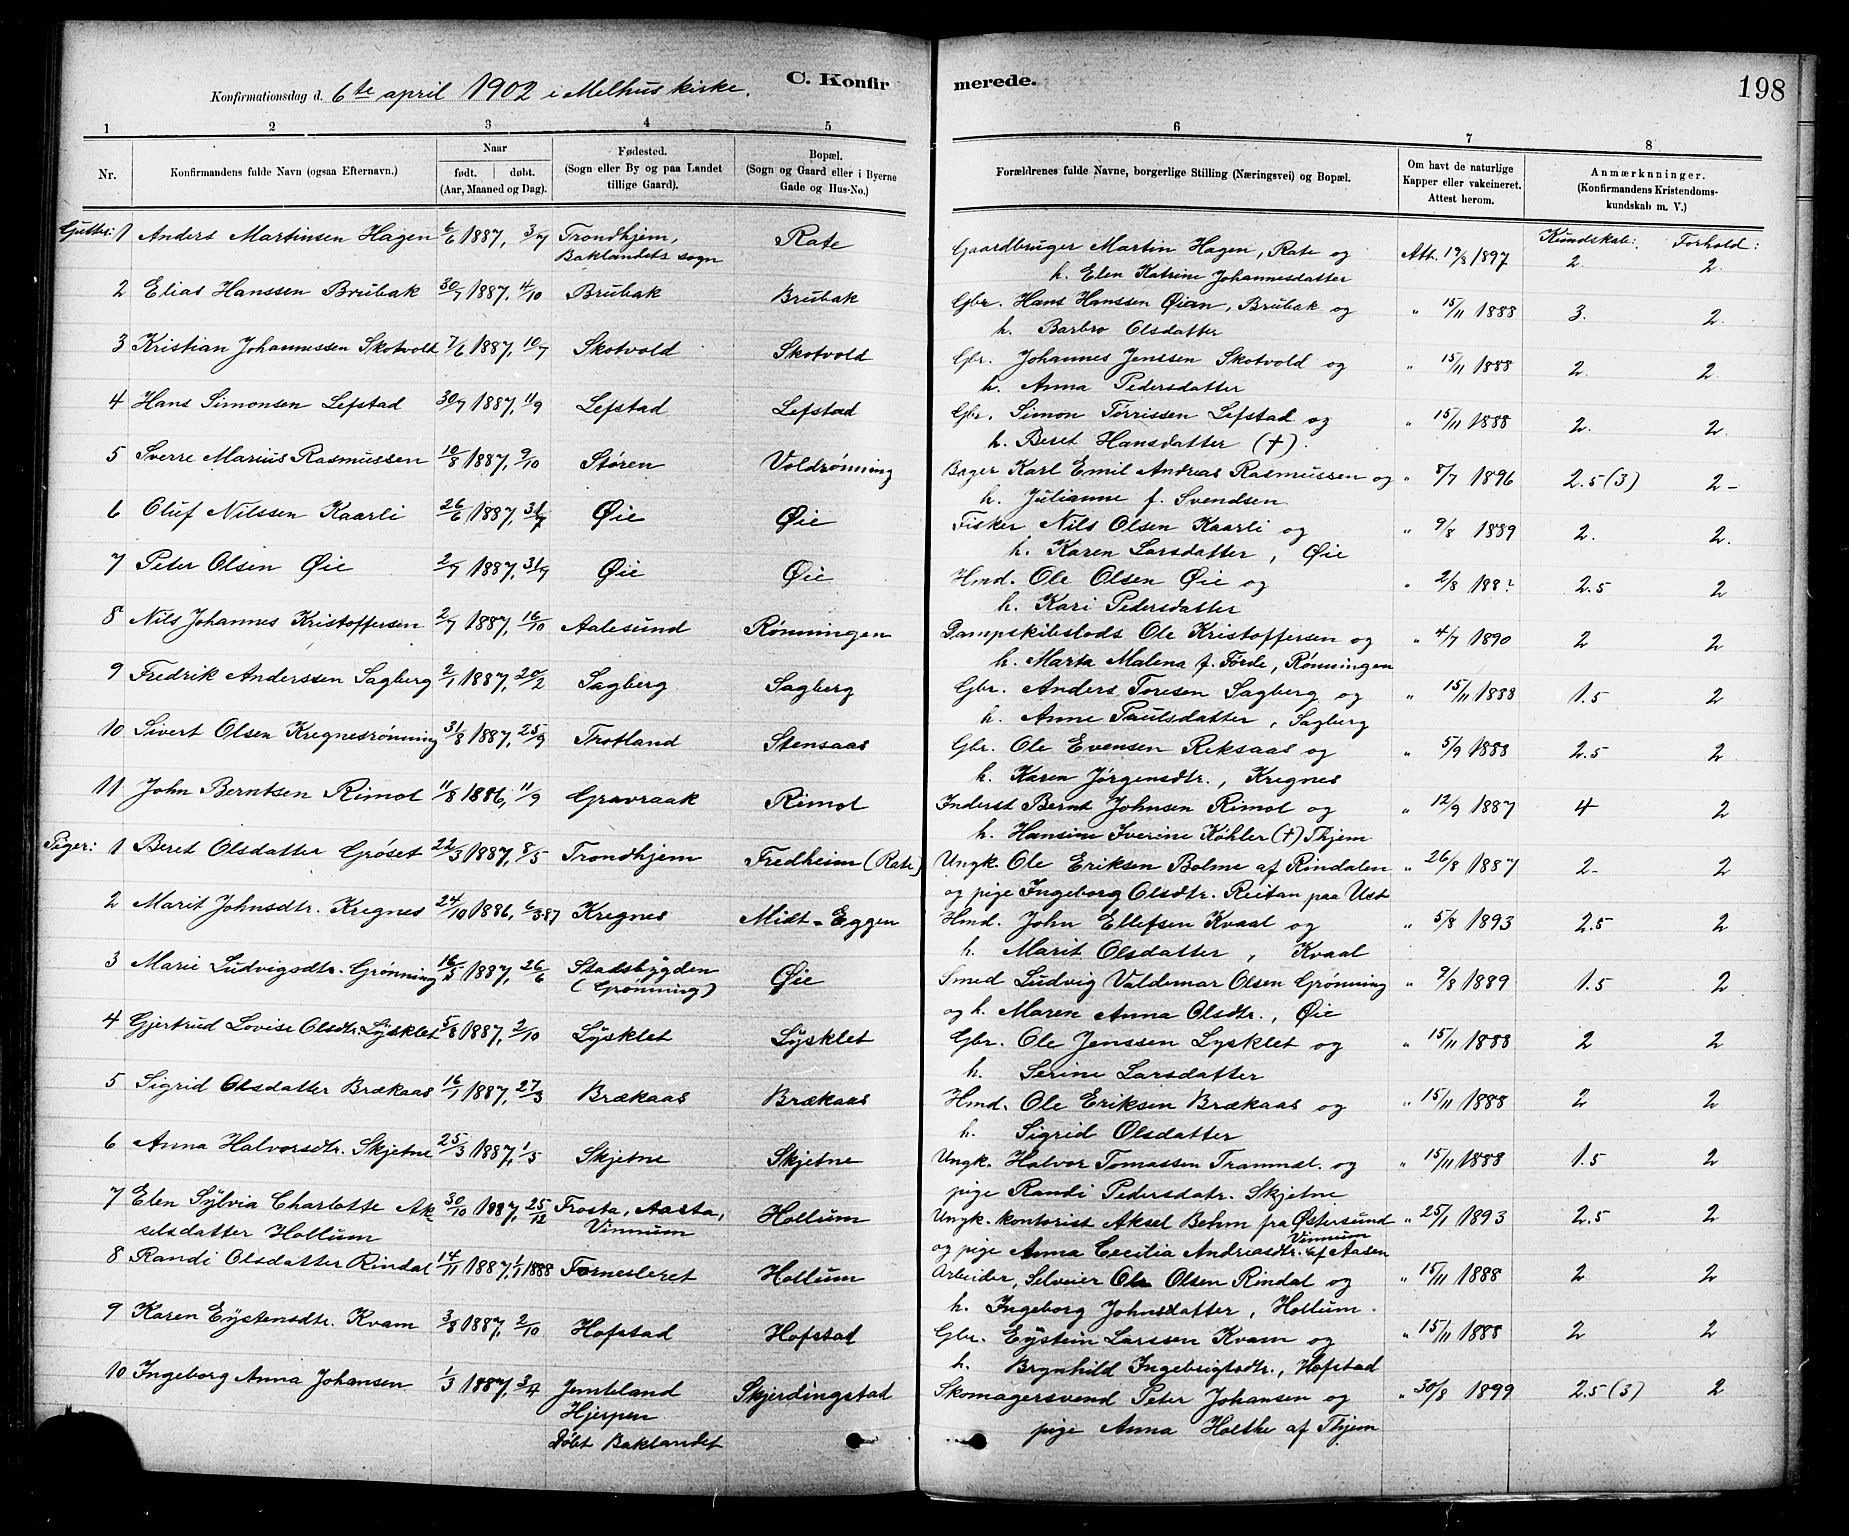 Konfirmationsdag d. 6te april 1902 i Melhus kirke. C. Konfirmerede. 198
1 2 3 4 5 6 7 8
Nr. Konfirmandens fulde Navn (ogsaa Efternavn.) Naar født. døbt. (Aar, Maaned og Dag). Fødested. (Sogn eller By og paa Landet tillige Gaard). Bopæl. (Sogn og Gaard eller i Byerne Gade og Hus-No.) Forældrenes fulde Navne, borgerlige Stilling (Næringsvei) og Bopæl. Om havt de naturlige Kapper eller vakcineret. Attest herom. Anmærkninger. (Konfirmandens Kristendoms-kundskab m. V.)
Kundskab: Forhold:
Gutter: 1 Anders Martinsen Hagen 6/6 1887, 3/7 Trondhjem, Baklandets sogn Rate Gaardbruger Martin Hagen, Rate og Att. 19/8 1897 2. 2.
h. Elen Katrine Johannesdatter
2 Elias Hanssen Brubak 30/7 1887, 4/10 Brubak Brubak Gbr. Hans Hanssen Øian, Brubak og " 15/11 1888 3. 2.
h. Barbro Olsdatter
3 Kristian Johannessen Skotvold 7/6 1887, 10/7 Skotvold Skotvold Gbr. Johannes Jenssen Skotvold og " 15/11 1888 2 2.
h. Anna Pedersdatter
4 Hans Simonsen Lefstad 30/7 1887, 11/9 Lefstad Lefstad Gbr. Simon Tørrissen Lefstad og " 15/11 1888 2. 2.
h. Beret Hansdatter (†).
5 Sverre Marius Rasmussen 10/8 1887, 9/10 Støren Voldrønning Bager Karl Emil Andreas Rasmussen og " 8/7 1896 2.5 (3) 2-
h. Julianne f. Svendsen
6 Oluf Nilssen Kaarli 26/6 1887, 31/7 Øie Øie Fisker Nils Olsen Kaarli og " 9/8 1889 2. 2.
h. Karen Larsdatter, Øie
7 Peter Olsen Øie 2/7 1887, 31/7 Øie Øie Hmd. Ole Olsen Øie og " 2/8 188? 2.5 2
h. Kari Pedersdatter
8 Nils Johannes Kristoffersen 2/7 1887, 16/10 Aalesund Rønningen Dampskibslods Ole Kristoffersen og " 4/7 1890 2 2
h. Marta Malena f. Førde, Rønningen
9 Fredrik Anderssen Sagberg 2/1 1887, 20/2 Sagberg Sagberg Gbr. Anders Toresen Sagberg og " 15/11 1888 1.5 2
h. Anne Paulsdatter, Sagberg
10 Sivert Olsen Kregnesrønning 31/8 1887, 25/9 Trotland Stensaas Gbr. Ole Evensen Reksaas og " 5/9 1888 2.5 2
h. Karen Jørgensdtr., Kregnes
11 John Berntsen Rimol 11/8 1886, 11/9 Gravraak Rimol Inderst Bernt Johnsen Rimol og " 12/9 1887 4 2
h. Hansine Iverine Køhler (†) Thjem
Piger: 1 Beret Olsdatter Grøset 22/3 1887, 8/5 Trondhjem Fredheim (Rate) Ungk. Ole Eriksen Bolme af Rindalen " 26/8 1887 2- 2
og pige Ingeborg Olsdtr. Reitan paa Ust
2 Marit Johnsdtr. Kregnes 24/10 1886, 6/3 87 Kregnes Midt-Eggen Hmd. John Ellefsen Kvaal og " 5/8 1893 2.5 2
h. Marit Olsdatter, Kvaal
3 Marie Ludvigsdtr. Grønning 16/5 1887, 26/6 Stadsbygden (Grønning) Øie Smed Ludvig Valdemar Olsen Grønning 9/8 1889 1.5 2
og h. Maren Anna Olsdtr., Øie
4 Gjertrud Lovise Olsdtr. Lysklet 5/8 1887, 2/10 Lysklet Lysklet Gbr. Ole Jenssen Lysklet og " 15/11 1888 2 2
h. Serine Larsdatter
5 Sigrid Olsdatter Brækaas 16/1 1887, 27/3 Brækaas Brækaas Hmd. Ole Eriksen Brækaas og " 15/11 1888 2 2
h. Sigrid Olsdatter
6 Anna Halvorsdtr. Skjetne 25/3 1887, 1/5 Skjetne Skjetne Ungk. Halvor Tomassen Tranmæl. og " 15/11 1888 1.5 2
pige Randi Pedersdatr. Skjetne
7 Elen Sylvia Charlotte Akselsdatter Hollum 30/10 1887, 25/12 Frosta, Aasta, Vinnum Hollum Ungk. kontorist Aksel Behm fra Østersund " 25/1 1893 2.5 2
og pige Anna Cecilia Andreasdtr. Vinnum af Aasen
8 Randi Olsdatter Rindal 14/11 1887, 1/1 1888 Tornesleret Hollum Arbeider, Selveier Ole Olsen Rindal og " 15/11 1888 2 2
h. Ingeborg Johnsdatter, Hollum.
9 Karen Eystensdtr. Kvam 3/8 1887, 2/10 Hofstad Hofstad Gbr. Eystein Larssen Kvam og " 15/11 1888 2 2
h. Brynhild Ingebrigtsdtr., Hofstad
10 Ingeborg Anna Johansen 1/3 1887, 3/4 Jemteland Hjerpen Døbt Baklandet Skjerdingstad Skomagersvend Peter Johansen og " 30/8 1899 2.5 (3) 2
pige Anna Holthe af Thjem